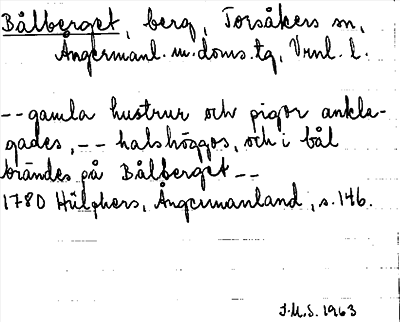 Bålberget, berg, Torsåkers sn,
Ångermanl. m. doms. tg, Vrnl. l.
-- gamla hustrur och pigor ankla-
gades, -- halshöggos, och i bål
brändes på Bålberget --
1780 Hülphers, Ångermanland, s. 146.
J.M.S. 1963